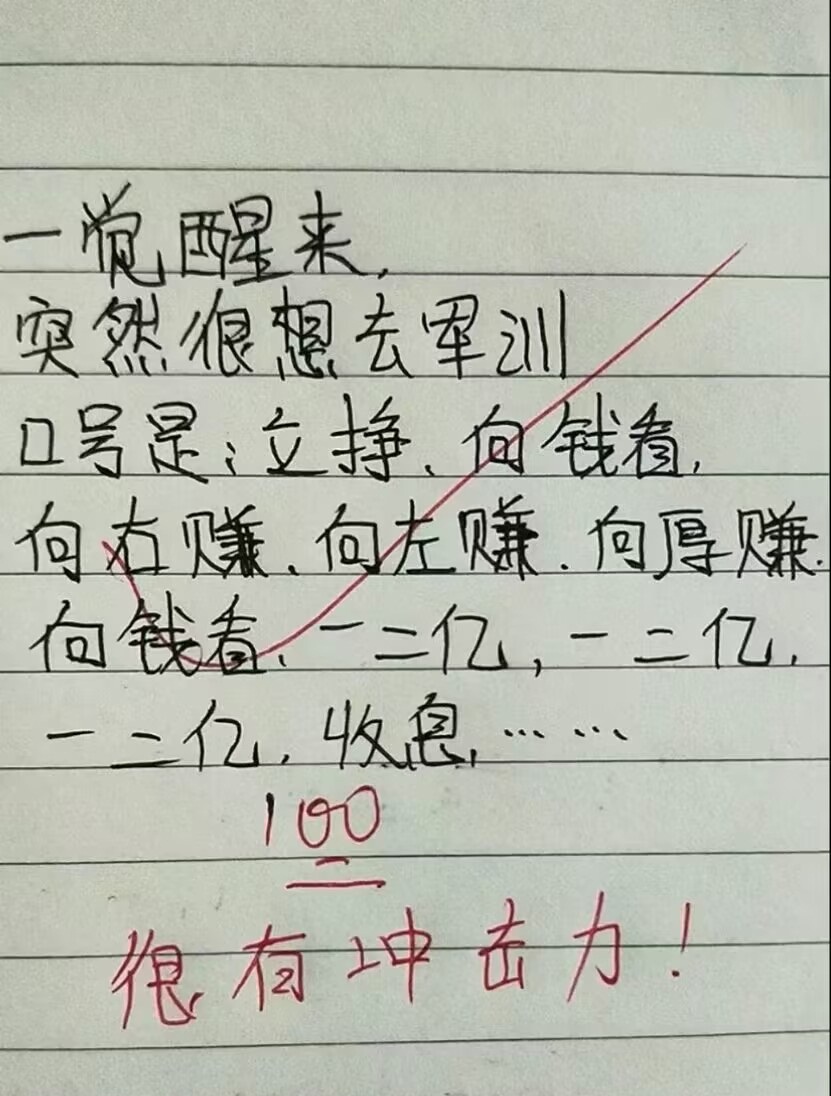 一觉醒来,
突然很想去军训
口号是:立挣、向钱看,
向右赚、向左赚.向厚赚.
向钱看、一二亿,一二亿,
一二亿,收息,……
100
很有冲击力!